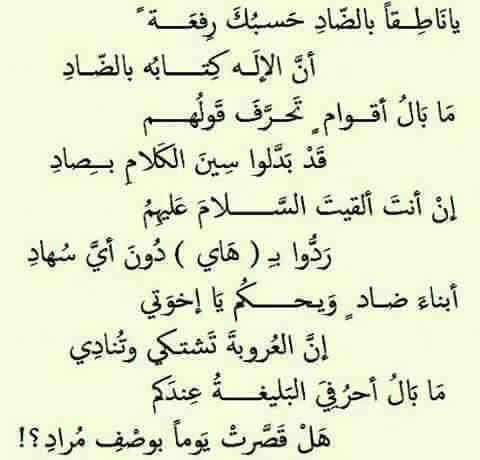 يانَاطِقاً بالضّادِ حَسبُكَ رِفعَةً
أنَّ الإلَه كِتابُه بالضّادِ
مَا بَالُ أقوامٍ تَحرَّفَ قَولُهم
قَدْ بَدَّلوا سِينَ الكَلامِ بِصادِ
إنْ أنتَ ألقيتَ السَّلامَ عَليهِمُ
رَدُّوا بـِ ( هَاي ) دُونَ أيَّ سُهادِ
أبناءَ ضادٍ وَيحكُم يَا إخوَتي
إنَّ العُروبةَ تَشتكي وتُنادِي
مَا بَالُ أحرُفِيَ البَليغةُ عِندَكم
هَلْ قَصَّرتْ يَوماً بوصْفِ مُرادِ؟!